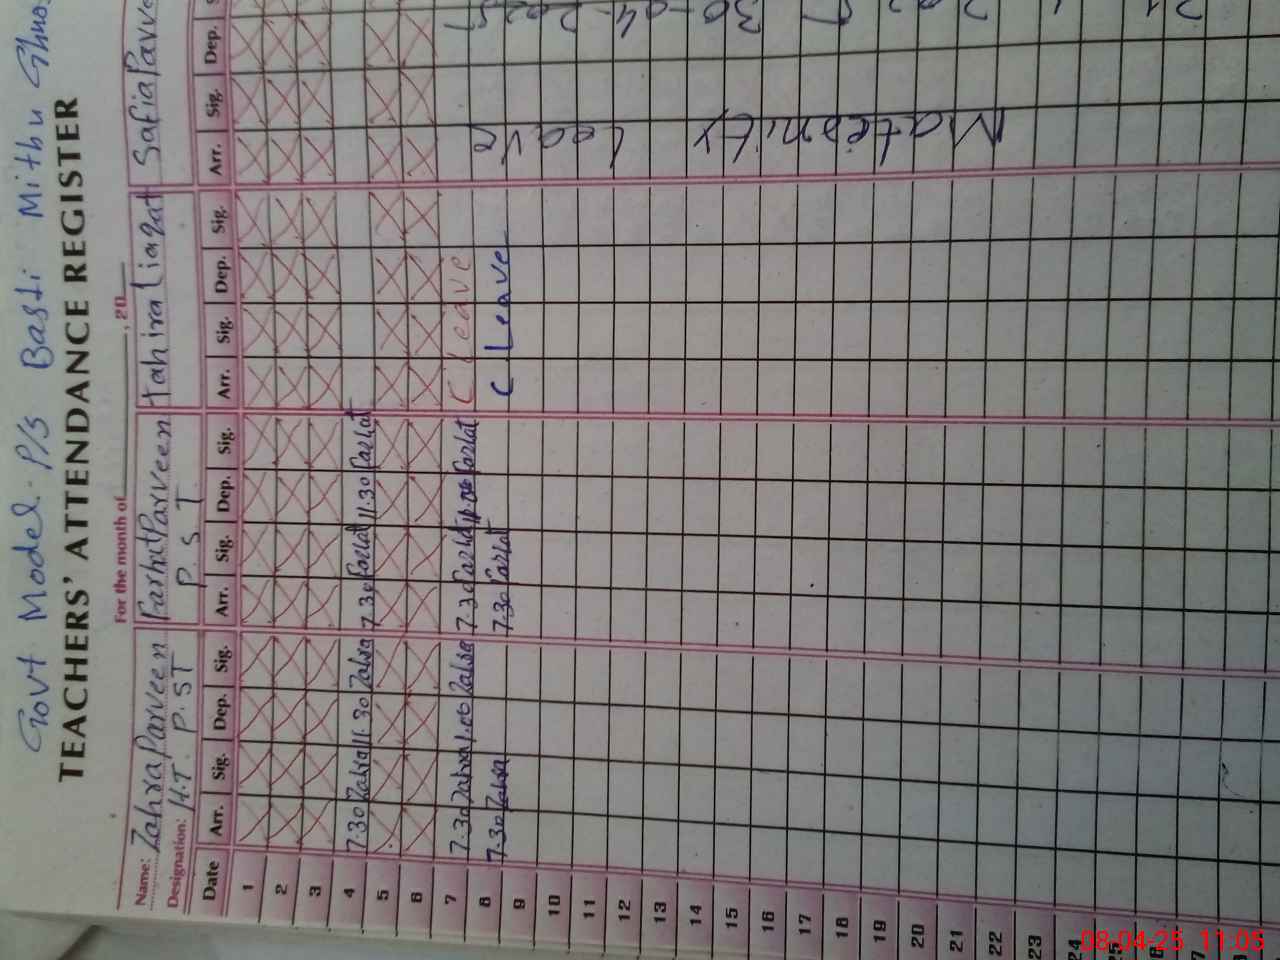 Govt Model P/S Basti Mithu
TEACHERS' ATTENDANCE REGISTER
For the month of , 20
Name: Zahra Parveen Farhat Parveen Tahira Liaqat Safia Parve
Designation: H.T. P.ST P.S.T
Date Arr. Sig. Dep. Sig. Arr. Sig. Dep. Sig. Arr. Sig. Dep. Sig. Arr. Sig. Dep.
1
2
3
4 7.30 Zahra 11.30 Zahra 7.30 Farhat 11.30 Farhat
5
6
7 7.30 Zahra 1.00 Zahra 7.30 Farhat Farhat C Leave
8 7.30 Zahra 7.30 Farhat C Leave
9
10
11
12
13
14
15
16
17
18
19
20
21
22
23
24
25
Maternity Leave
30-04-2025
08-04-25 11:05